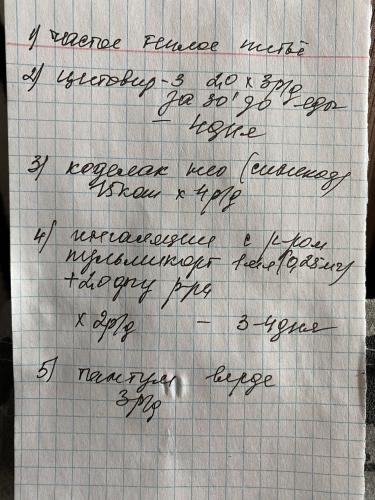 1) частое теплое питьё
2) цитовир-3 2,0 х 3р/д
за 30' до еды
– 4дня
3) коделак нео (синекод)
15кап х 4р/д
4) ингаляции с р-ром
пульмикорт 1мл (0,25мг)
+ 2,0 физ р-ра
х 2р/д – 3-4дня
5) пантум верде
3р/д